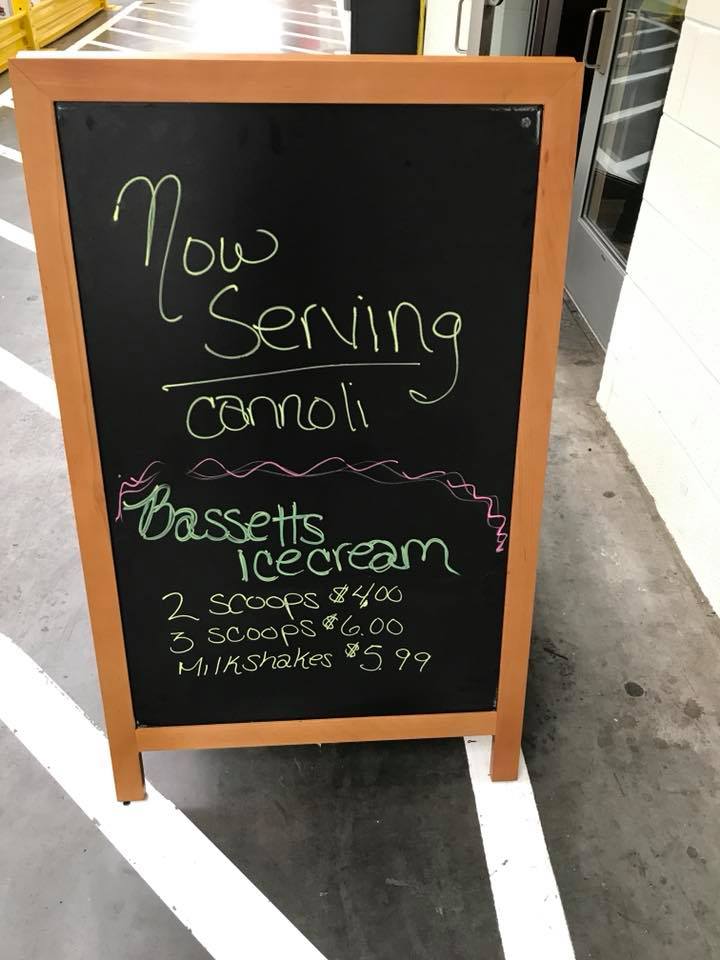 Now
Serving
cannoli
Bassetts
icecream
2 scoops $4.00
3 scoops $6.00
Milkshakes $5.99